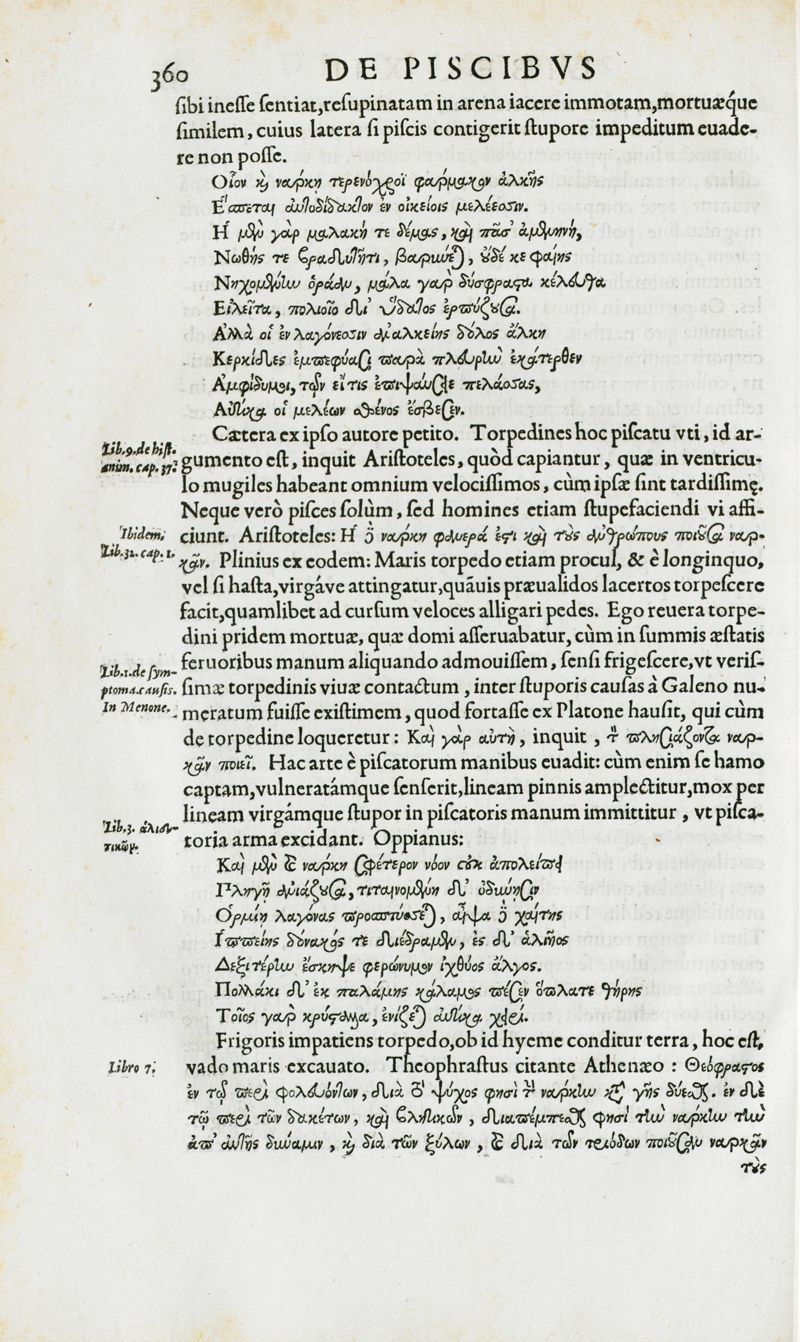 360 DE PISCIBVS
sibi inesse sentiat, resupinatam in arena iacere immotam, mortuæq́ue
similem, cuius latera si piscis contigerit stupore impeditum euade-
re non posse.
Οἷον καὶ νάρκη τερενόχροϊ φάρμακον ἀλκῆς
Ἕσπεται αὐτοδίδακτον ἐν οἰκείοις μελέεσσιν.
Ἡ μὲν γὰρ μαλακή τε δέμας, καὶ πᾶσ' ἀμενηνή,
Νωθής τε βραδυτῆτι, βαρύνεται, οὐδέ κε φαίης
Νηχομένην ὁράαν, μάλα γὰρ δύσφραστα κέλευθα
Εἱλεῖται, πολιοῖο δι' ὕδατος ἑρπύζουσα.
Ἀλλά οἱ ἐν λαγόνεσσιν ἀναλκείης δόλος ἄλκη
Κερκίδες ἐμπεφύασι παρὰ πλευρὴν ἑκάτερθεν
Ἀμφίδυμοι, τῶν εἴ τις ἐπιψαύσειε πελάσσας,
Αὐτίκα οἱ μελέων σθένος ἔσβεσεν.
Cætera ex ipso autore petito. Torpedines hoc piscatu vti, id ar-
Lib. 9. de hist. anim. cap. 37.
gumento est, inquit Aristoteles, quòd capiantur, quæ in ventricu-
lo mugiles habeant omnium velocissimos, cùm ipsæ sint tardissimę.
Neque verò pisces solùm, sed homines etiam stupefaciendi vi affi-
Ibidem.
ciunt. Aristoteles: Ἡ δὲ νάρκη φανερά ἐστι καὶ τοὺς ἀνθρώπους ποιοῦσα ναρ-
Lib. 32. cap. 1.
κᾶν. Plinius ex eodem: Maris torpedo etiam procul, & è longinquo,
vel si hasta, virgáve attingatur, quãuis præualidos lacertos torpescere
facit, quamlibet ad cursum veloces alligari pedes. Ego reuera torpe-
dini pridem mortuæ, quæ domi asseruabatur, cùm in summis æstatis
feruoribus manum aliquando admouissem, sensi frigescere, vt veris-
Lib. 1. de sym-
ptoma. causis.
simæ torpedinis viuæ contactum, inter stuporis causas à Galeno nu-
In Menone.
meratum fuisse existimem, quod fortasse ex Platone hausit, qui cùm
de torpedine loqueretur: Καὶ γὰρ αὐτὴ, inquit, τὸν πλησιάζοντα ναρ-
κᾶν ποιεῖ. Hac arte è piscatorum manibus euadit: cùm enim se hamo
captam, vulneratámque senserit, lineam pinnis amplectitur, mox per
lineam virgámque stupor in piscatoris manum immittitur, vt pisca-
Lib. 3. ἁλιευ-
τικῶν.
toria arma excidant. Oppianus:
Καὶ μὲν καὶ νάρκη σφέτερον νόον οὐκ ἀπολείπει
Πληγῇ ἀνιάζουσα, τιταινομένη δ' ὀδύνῃσιν
Ὁρμίῃ λαγόνας προσπτύσσεται, αἶψα δὲ χαίτης
Ἱππείης δόνακός τε διέδραμεν, ἐς δ' ἁλιῆος
Δεξιτέρην ἔσκηψε φερώνυμον ἰχθύος ἄλγος.
Πολλάκι δ' ἐκ παλάμης κάλαμος πέσεν ὅπλατε θήρης
Τοῖος γὰρ κρύσταλλος, ἐνίζεται αὐτίκα χειρί.
Frigoris impatiens torpedo, ob id hyeme conditur terra, hoc est,
Libro 7.
vado maris excauato. Theophrastus citante Athenæo: Θεόφραστος
ἐν τῷ περὶ φολευόντων, διὰ τὸ ψύχος φησὶ τὴν νάρκην κατὰ γῆς δύεσθαι. ἐν δὲ
τῷ περὶ τῶν δακέτων, καὶ βλητικῶν, διαπέμπεσθαι φησὶ τὴν νάρκην τὴν
ἀπ' αὐτῆς δύναμιν, καὶ διὰ τῶν ξύλων, καὶ διὰ τῶν τριόδων ποιοῦσαν ναρκᾶν
τοὺς